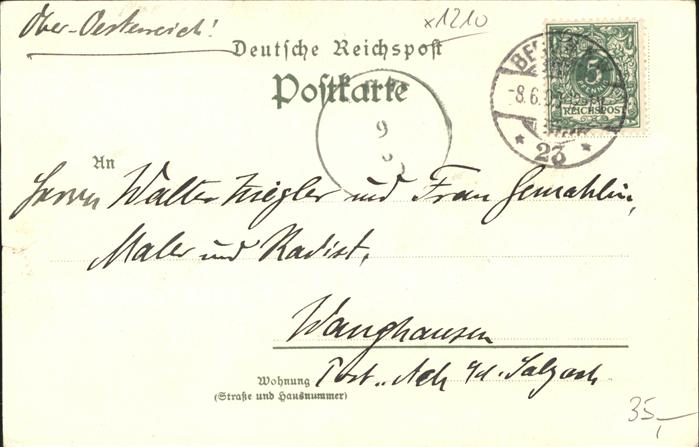 Ober-Oesterreich!
x1210
Deutsche Reichspost
Postkarte
5
REICHSPOST
BERLIN
8.6.
* 23 *
9
An
Herrn Walter Ziegler und Frau Gemahlin,
Maler und Radist,
Wanghausen
Post. Ach a/d. Salzach
Wohnung
(Straße und Hausnummer)
35,-